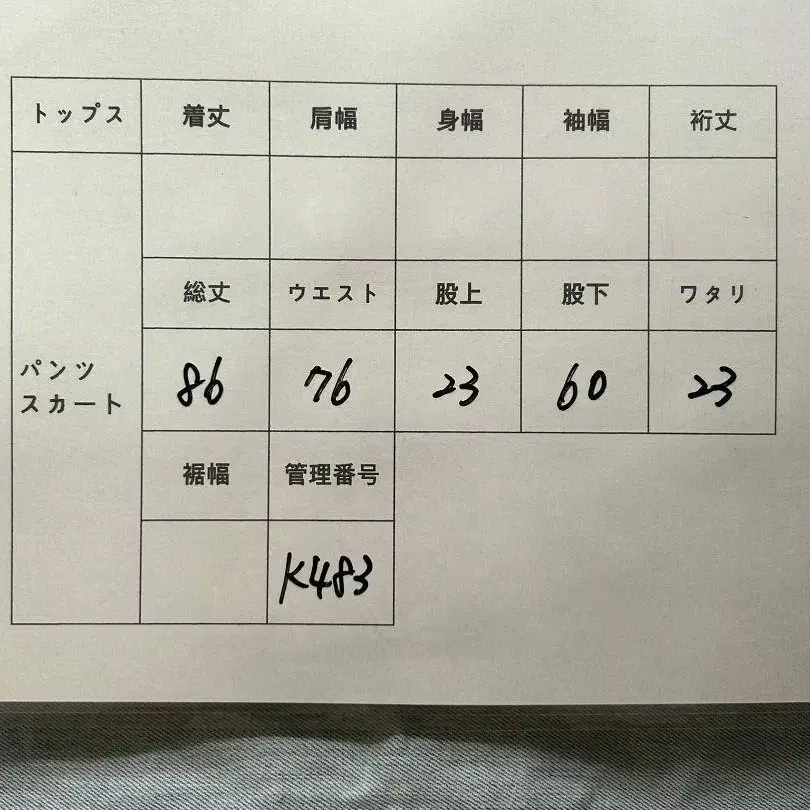 トップス 着丈 肩幅 身幅 袖幅 裄丈
総丈 ウエスト 股上 股下 ワタリ
パンツ
スカート
86 76 23 60 23
裾幅 管理番号
K483